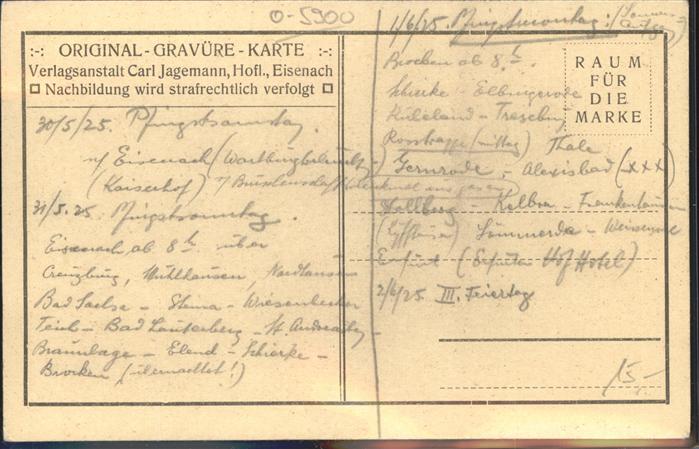 0-5900
:-: ORIGINAL-GRAVÜRE-KARTE :-:
Verlagsanstalt Carl Jagemann, Hofl., Eisenach
Nachbildung wird strafrechtlich verfolgt
30/5/25. Pfingstsamstag.
n/ Eisenach (Wartburg
(Kaiserhof)
31/5.25. Pfingstsonntag.
Eisenach ab 8 h über
Creuzburg, Mühlhausen, Nordhausen
Bad Sachsa - Steina - Wiesenbecker
Teich - Bad Lauterberg - St. Andreasbg -
Braunlage - Elend - Schierke -
Brocken (übernachtet!)
1/6/25. Pfingstmontag:
Brocken ab 8 h.
Schierke - Elbingerode
Rübeland - Treseburg
Rosstrappe (mittag) Thale
Gernrode, - Alexisbad (xxx)
Kelbra - Frankenhausen
(Kyffhäuser) Sömmerda - Weissensee
Erfurt (Erfurter Hof Hotel)
2/6/25 III. Feiertag
RAUM
FÜR
DIE
MARKE
15-